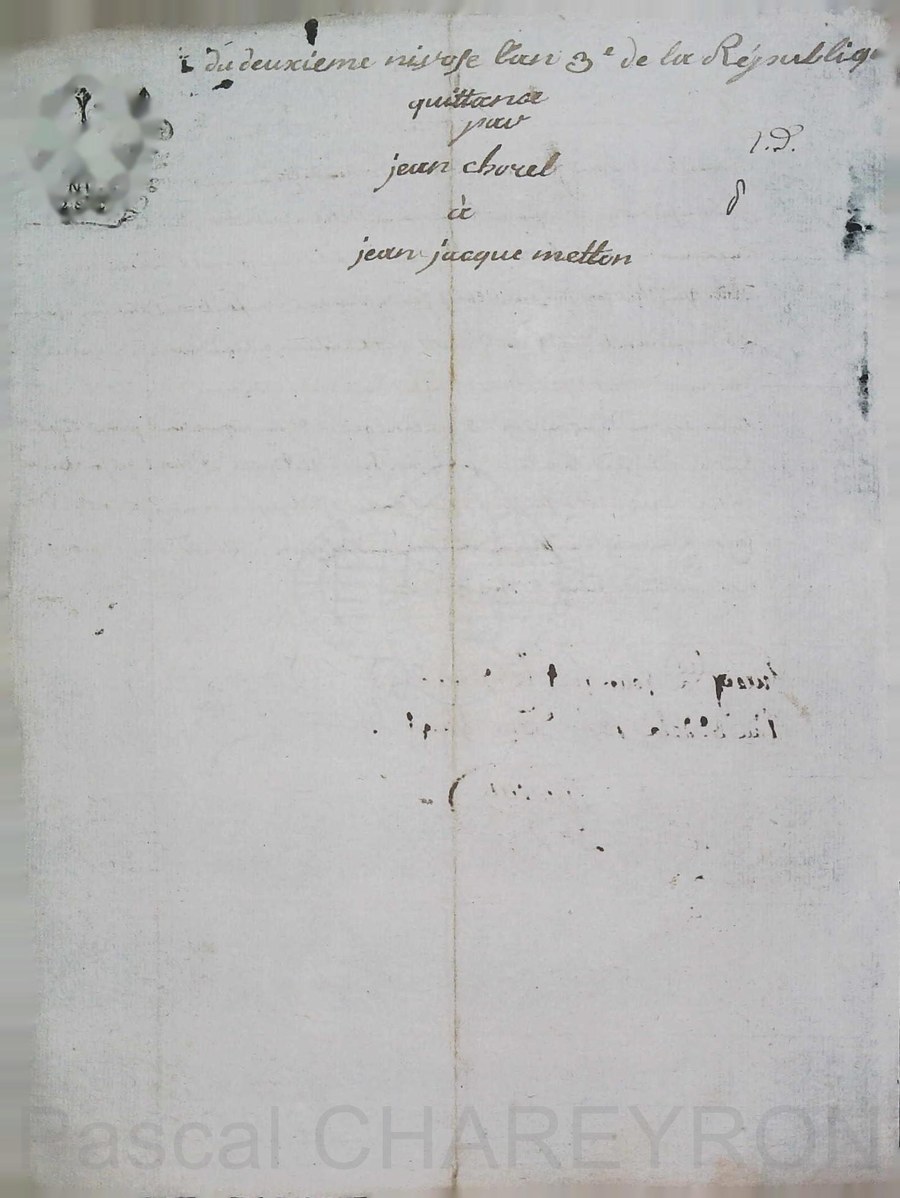 du deuxieme nivose l'an 3e de la Républiq
quittance
par
jean chorel
à
jean jacque metton
Pascal CHAREYRON